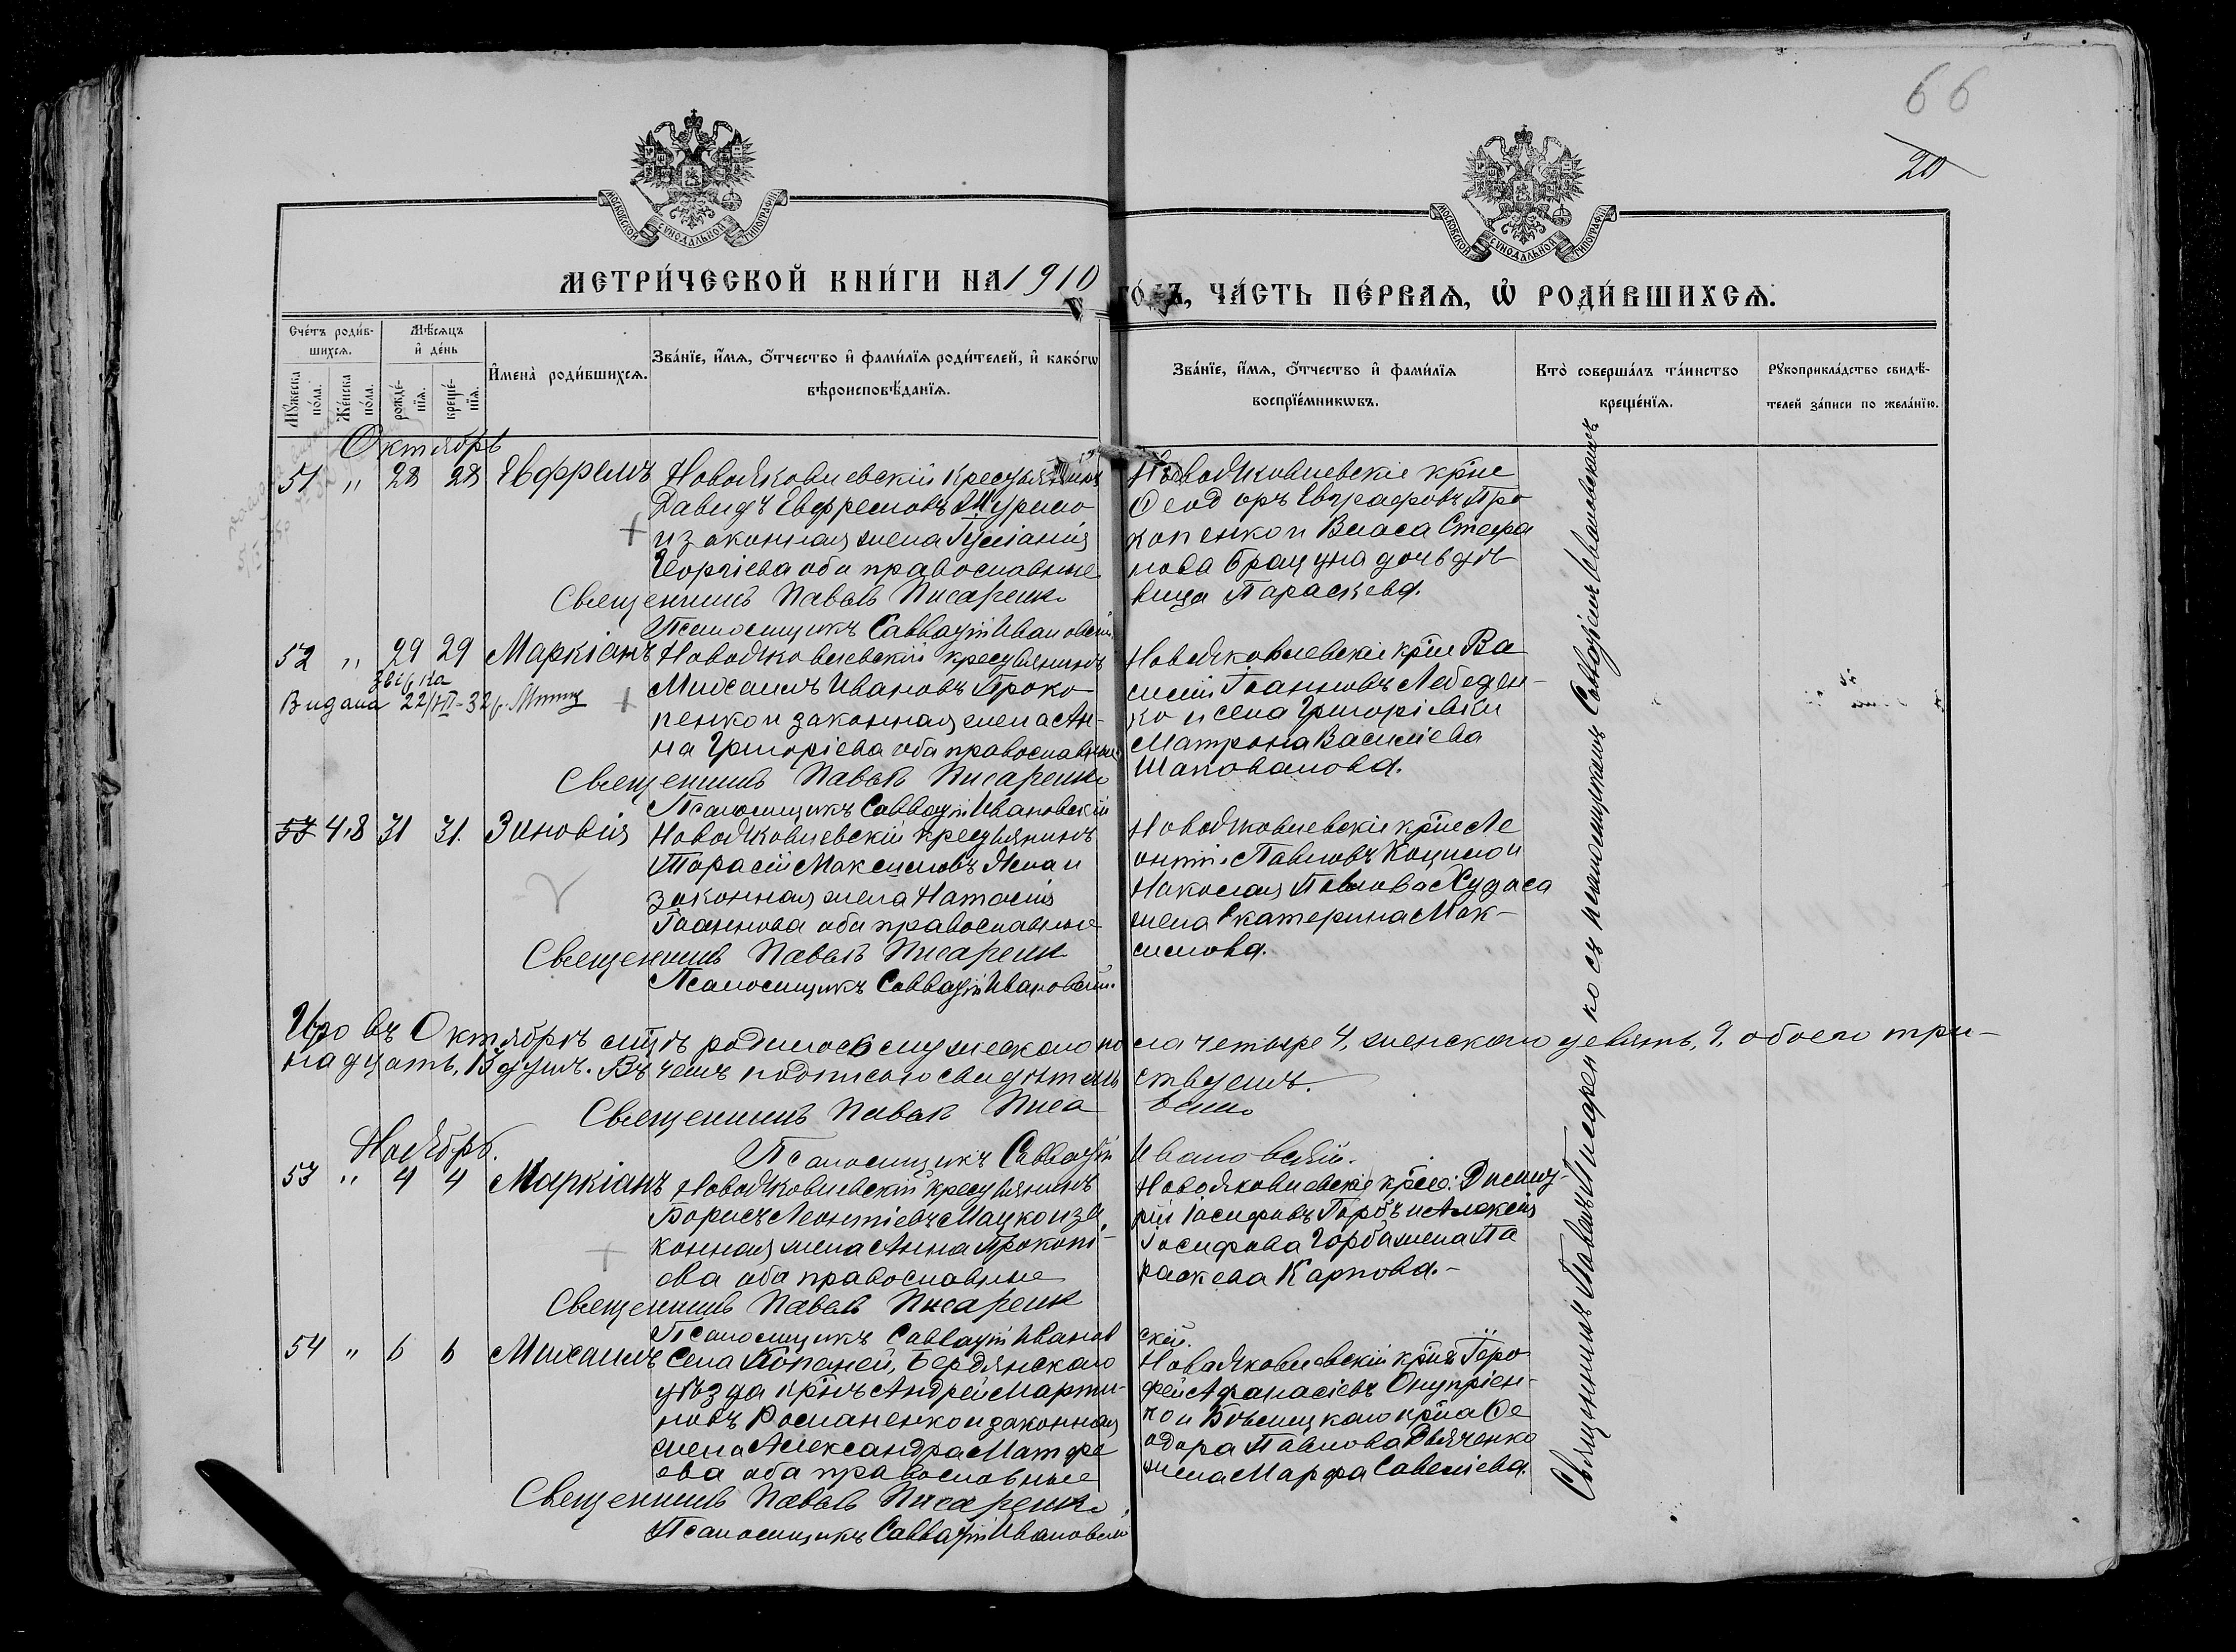 66
20
МОСКОВСКОЙ СѴНОДАЛЬНОЙ ТИПОГРАФІИ
МОСКОВСКОЙ СѴНОДАЛЬНОЙ ТИПОГРАФІИ
МЕТРИ́ЧЕСКОЙ КНИ́ГИ НА 1910 ГО́ДЪ, ЧА́СТЬ ПЕ́РВАЯ, Ѡ҆ РОДИ́ВШИХСЯ.
Сче́тъ роди́в-
шихся.
Мꙋ́жеска по́ла.
Же́нска по́ла.
Мѣ́сяцъ
и҆ де́нь
рожде́-нїя.
креще́-нїя.
И҆мена̀ роди́вшихся.
Зва́нїе, и҆́мя, ѻ҆́тчество и҆ фами́лїя роди́телей, и҆ како́гѡ
вѣроисповѣ́данїя.
Зва́нїе, и҆́мя, ѻ҆́тчество и҆ фами́лїя
воспрїе́мникѡвъ.
Кто̀ соверша́лъ та́инство
креще́нїя.
Рꙋкоприкла́дство свидѣ́-
телей за́писи по жела́нїю.
Октябрь
51 " 28 28 Евфремъ Новояковлевскій крестьянинъ
Давидъ Евфремовъ
и законная жена Іуліанія
Георгіева оба православные
Священникъ Павелъ Писаренко
Псаломщикъ Савватій Ивановскій
Новояковлевскіе кр-не
Ѳеодоръ Евграфовъ Про
копенко и Власа Стефа
нова дочь дѣ-
вица Параскева.
52 " 29 29 Маркіанъ Новояковлевскій крестьянинъ
Видана 22/III-32
Михаилъ Ивановъ Проко
пенко и законная жена Ан-
на Григоріева оба православные
Священникъ Павелъ Писаренко
Псаломщикъ Савватій Ивановскій
Новояковлевскіе кр-не Ва
силій Іоанновъ Лебеден-
ко и села Григорьевки
Матрона Василіева
Шаповалова.
53 48 31 31. Зиновія Новояковлевскій крестьянинъ
Тарасій Максимовъ и
законная жена Наталія
Іоаннова оба православные
Священникъ Павелъ Писаренк
Псаломщикъ Савватій Ивановскій.
Новояковлевскіе кр-не Ле
онтій Павловъ и
Николая Павлова
жена Екатерина Мак-
симова.
Итого въ Октябрѣ м-цѣ родилось мужескаго пола четыре 4, женскаго девять, 9, обоего три-
надцать, 13 душъ. Въ чемъ подписью свидѣтельствуемъ.
Священникъ Павелъ Писаренко
Псаломщикъ Савватій Ивановскій.
Ноябрь.
53 " 4 4 Маркіанъ Новояковлевскій крестьянинъ
Борисъ Леонтіевъ Мацко и за
конная жена Анна Прокопі-
ева оба православные
Священникъ Павелъ Писаренк
Псаломщикъ Савватій Ивановскій.
Новояковлевскіе кр-не: Димит-
рій Іосифовъ Горбъ и Алексія
Іосифова Горба жена Па
раскева Карпова.-
54 " 6 6 Михаилъ Села Копаней, Бердянскаго
уѣзда кр-нъ Андрей Марти-
новъ Романенко и законная
жена Александра Матфе
ева оба православные
Священникъ Павелъ Писаренко
Псаломщикъ Савватій Ивановскій
Новояковлевскій кр-нъ Іеро
фей Афанасіевъ Онупріен-
ко и кр-на Ѳе
одора Павлова Дьяченко
жена Марфа Савеліева.
Священникъ Павелъ Писаренко съ псаломщикомъ Савватіемъ Ивановскимъ